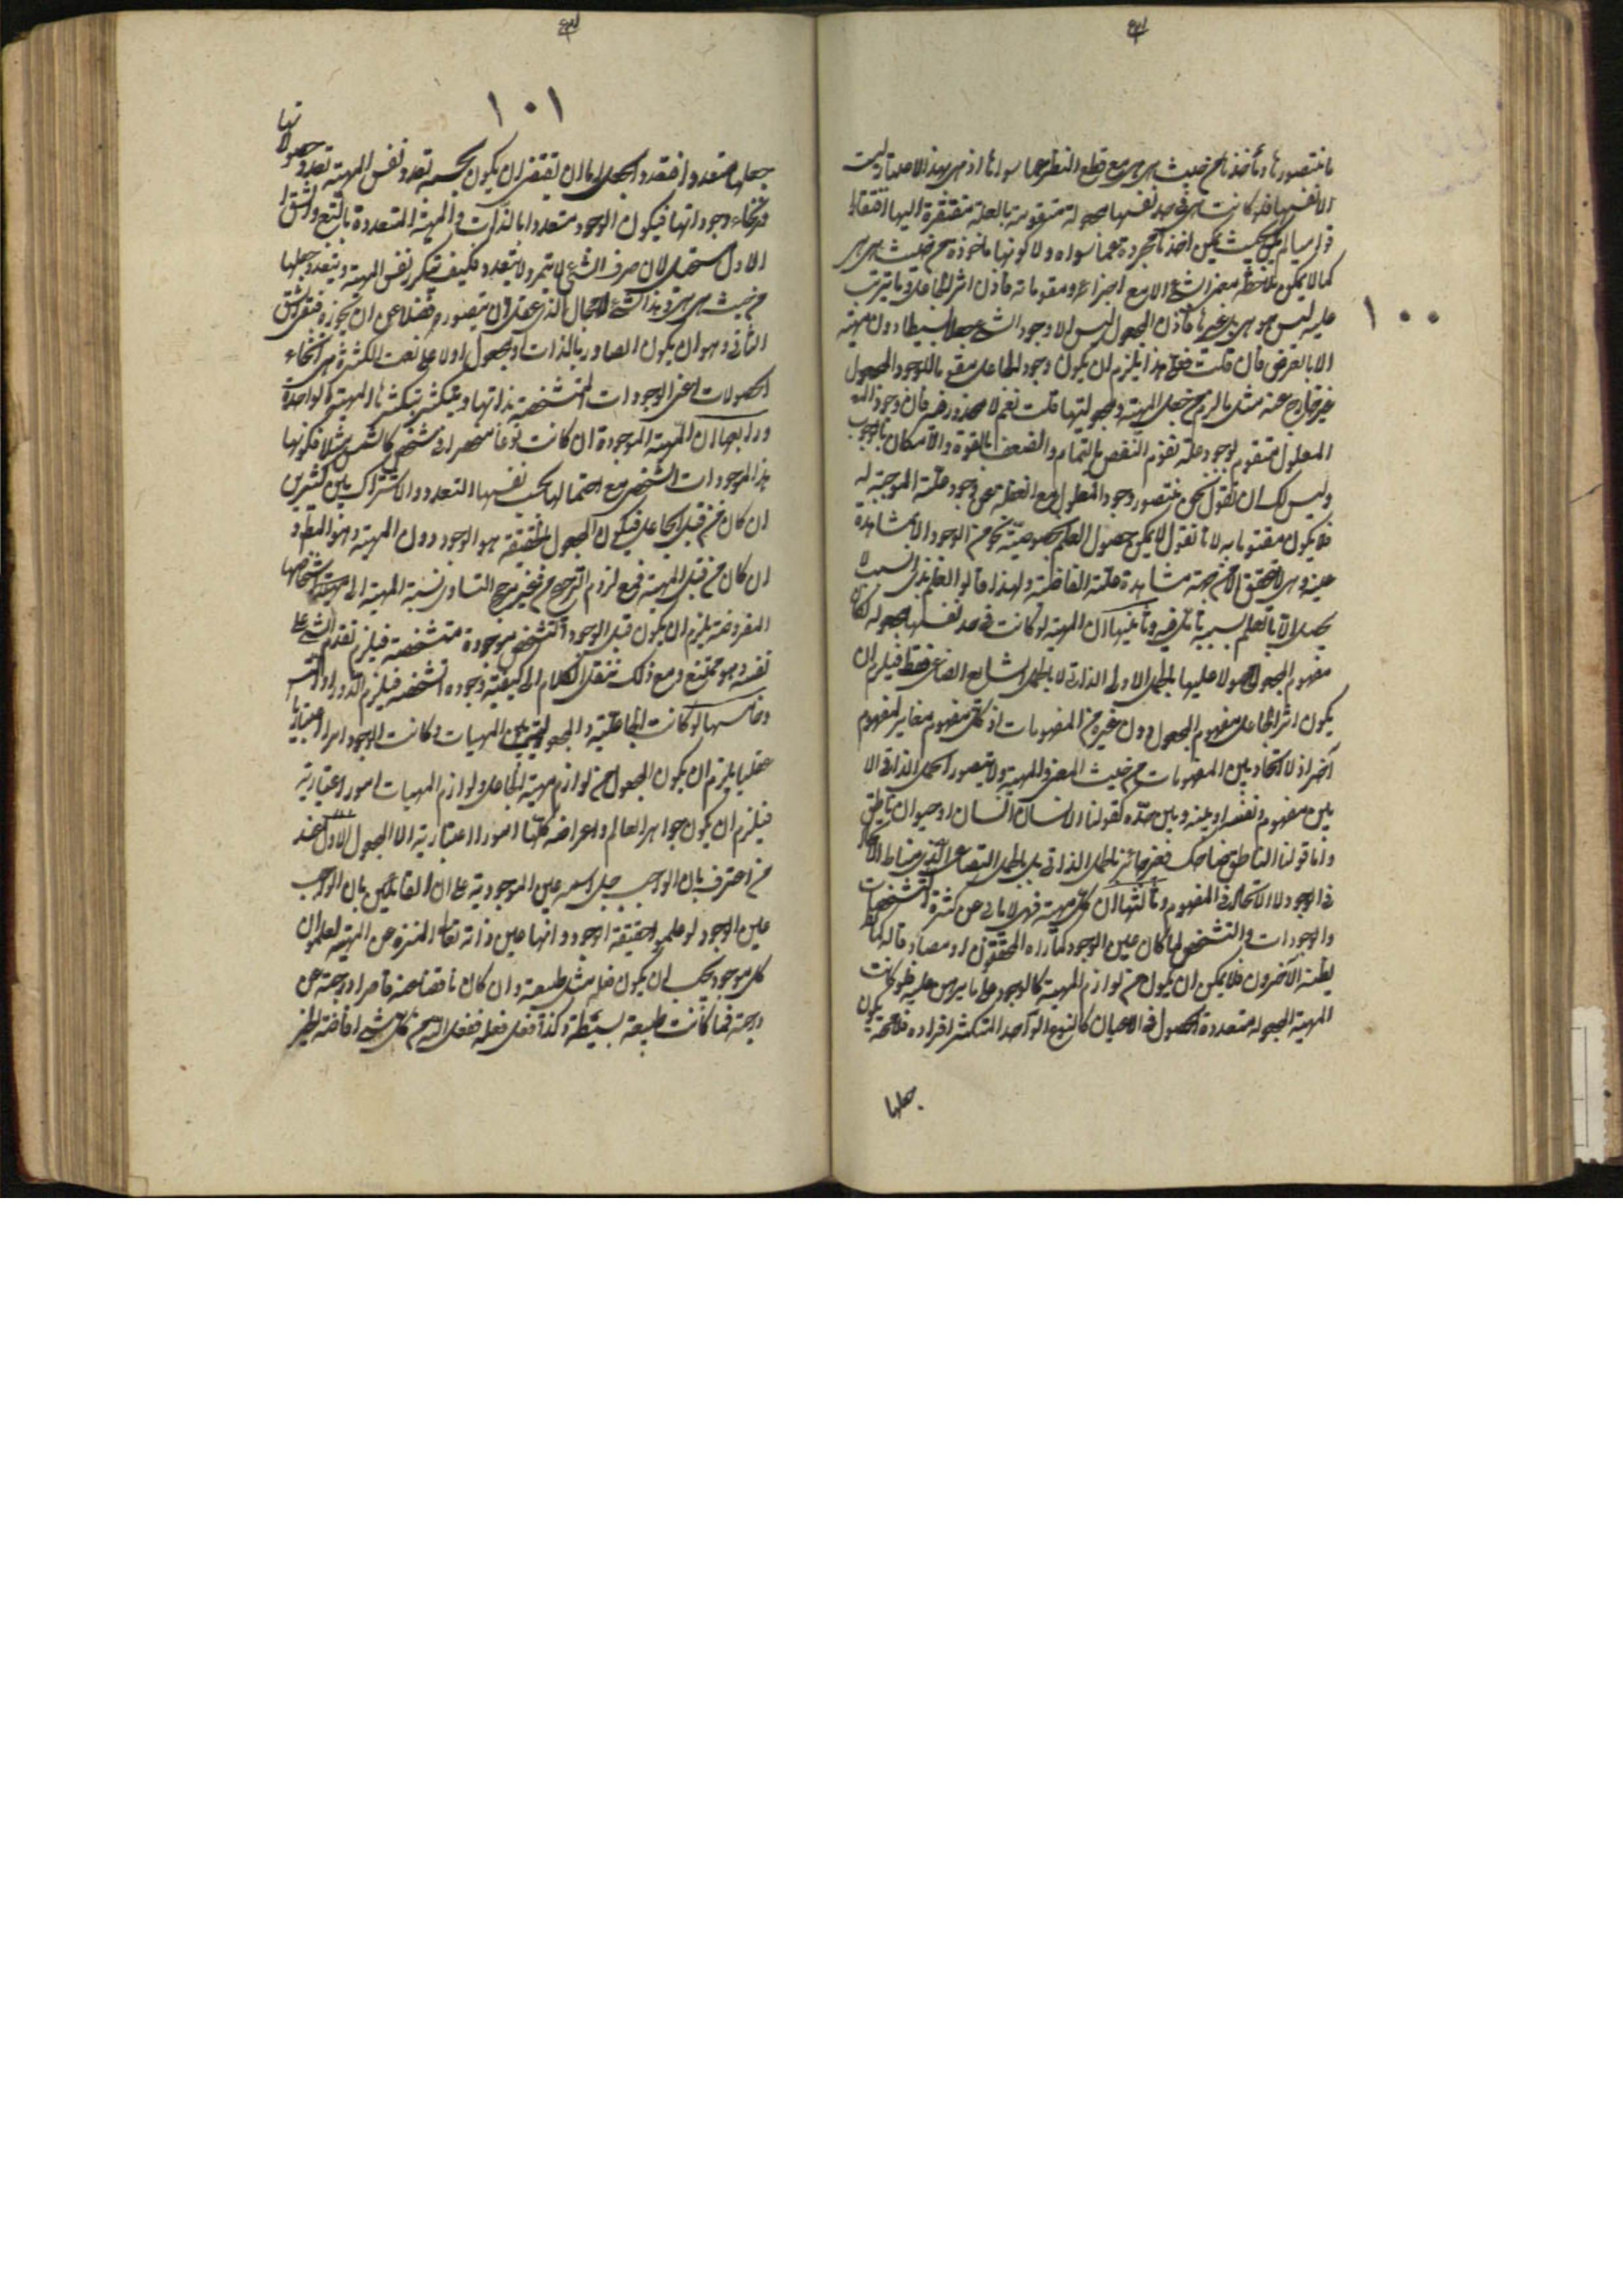 ١٠٠
ما نتصورها ونأخذها من حيث هي هي مع قطع النظر عما سواها اذ هي بهذا الاعتبار ليست
الا نفسها فلو كانت هي في حد نفسها مجعولة متقومة بالعلة مفتقرة اليها افتقارا
قواميا لم يكن بحيث يمكن اخذها مجردة عما سواه ولا كونها ماخوذة من حيث هي هي
كما لا يمكن ملاحظة معنى الشيء الا مع اجزائه ومقوماته فاذن اثر الجاعل وما يترتب
عليه ليس هو هي بل غيرها فاذن المجعول ليس الا وجود الشيء جعلا بسيطا دون مهيته
الا بالعرض فان قلت فعلى هذا يلزم ان يكون وجود الجاعل مقوما للوجود المجعول
غير خارج عنه مثل ما لزم من جعل المهية ومجعوليتها قلت نعم لا محذور فيه فان وجود
المعلول متقوم بوجود علته تقوم النقص بالتمام والضعف بالقوة والامكان بالوجوب
وليس لك ان تقول نحن نتصور وجود المعلول مع الغفلة عن وجود علته الموجبة له
فلا يكون مقوما به لانا نقول لا يمكن حصول العلم بخصوصية نحو من الوجود الا بمشاهدة
عينه وهي لا تتحقق الا من جهة مشاهدة علته الفائضة ولهذا قالوا العلم بذي السبب لا
يحصل الا بالعلم بسببه تأمل فيه وثانيها ان المهية لو كانت في حد نفسها مجعولة لكان
مفهوم المجعول محمولا عليها بالحمل الاولى الذاتي لا بالحمل الشايع الصناعي فقط فيلزم ان
يكون اثر الجاعل مفهوم المجعول دون غيره من المفهومات اذ كل مفهوم مغاير لمفهوم
آخر اذ لا اتحاد بين المفهومات من حيث المعنى والمهية ولا يتصور الحمل الذاتي الا
بين مفهوم ونفسه او بينه وبين حده كقولنا الانسان انسان او حيوان ناطق
واما قولنا الناطق ضاحك فغير جائز بالحمل الذاتي بل بالحمل الصناعي الذي مناطه الاتحاد
في الوجود لا الاتحاد في المفهوم وثالثها ان كل مهية فهي لا تابى عن كثرة التشخصات
والوجودات والتشخص لما كان عين الوجود كما رآه المحققون او مصادقا له كما
يظنه الآخرون فلا يمكن ان يكون من لوازم المهية كالوجود على ما برهن عليه فلو كانت
المهية المجعولة متعددة الحصول في الاعيان كالنوع الواحد المتكثر افراده فلا محة يكون
جعلها
١٠١
جعلها متعددا فتعدد الجعل اما ان يقتضى ان يكون بحسبه تعدد نفس المهية او تعدد حصولاتها
وانحاء وجوداتها فيكون الوجود متعددا بالذات والمهية المتعددة بالتبع والشق
الاول مستحيل لان صرف الشيء لا يتميز ولا يتعدد فكيف تتكرر نفس المهية ويتعدد جعلها
من حيث هي هي وهذا شيء لا مجال لذي عقل ان يتصوره فضلا عن ان يجوزه فبقي الشق
الثاني وهو ان يكون الصادر بالذات والمجعول اولا على نعت الكثرة هي انحاء
الحصولات اعني الوجودات المتشخصة بذاتها ويتكثر بتكثرها المهية الواحدة
ورابعها ان المهية الموجودة ان كانت نوعا منحصرا في شخص كالشمس مثلا فكونها
هذا الموجود الشخصي مع احتمالها بحسب نفسها التعدد والاشتراك بين كثيرين
ان كان من قبل الجاعل فيكون المجعول بالحقيقة هو الوجود دون المهية وهو المط و
ان كان من قبل المهية فمع لزوم الترجيح من غير مرجح لتساوي نسبة المهية الى اشخاصها
المفروضة يلزم ان يكون قبل الوجود والتشخص موجودة متشخصة فيلزم تقدم الشيء على
نفسه وهو ممتنع ومع ذلك ننقل الكلام الى كيفية وجوده وتشخصه فيلزم الدور او التس
وخامسها لو كانت الجاعلية والمجعولية بين المهيات وكانت الوجود امرا اعتباريا
عقليا يلزم ان يكون المجعول من لوازم مهية الجاعل ولوازم المهيات امور اعتبارية
فيلزم ان يكون جواهر العالم واعراضه كلها امورا اعتبارية الا المجعول الاول عند
من اعترف بان الواجب جل اسمه عين الموجودية على ان القائلين بان الواجب
عين الوجود لو علموا حقيقة الوجود وانها عين ذاته تعالى المنزه عن المهية لعلموا ان
كل موجود يجب ان يكون فعله مثل طبيعته وان كان ناقصا عنه قاصرا درجته عن
درجته فما كانت طبيعته بسيطة وكذا فعله فعله ففعل الله من كل شيء افاضة الخير